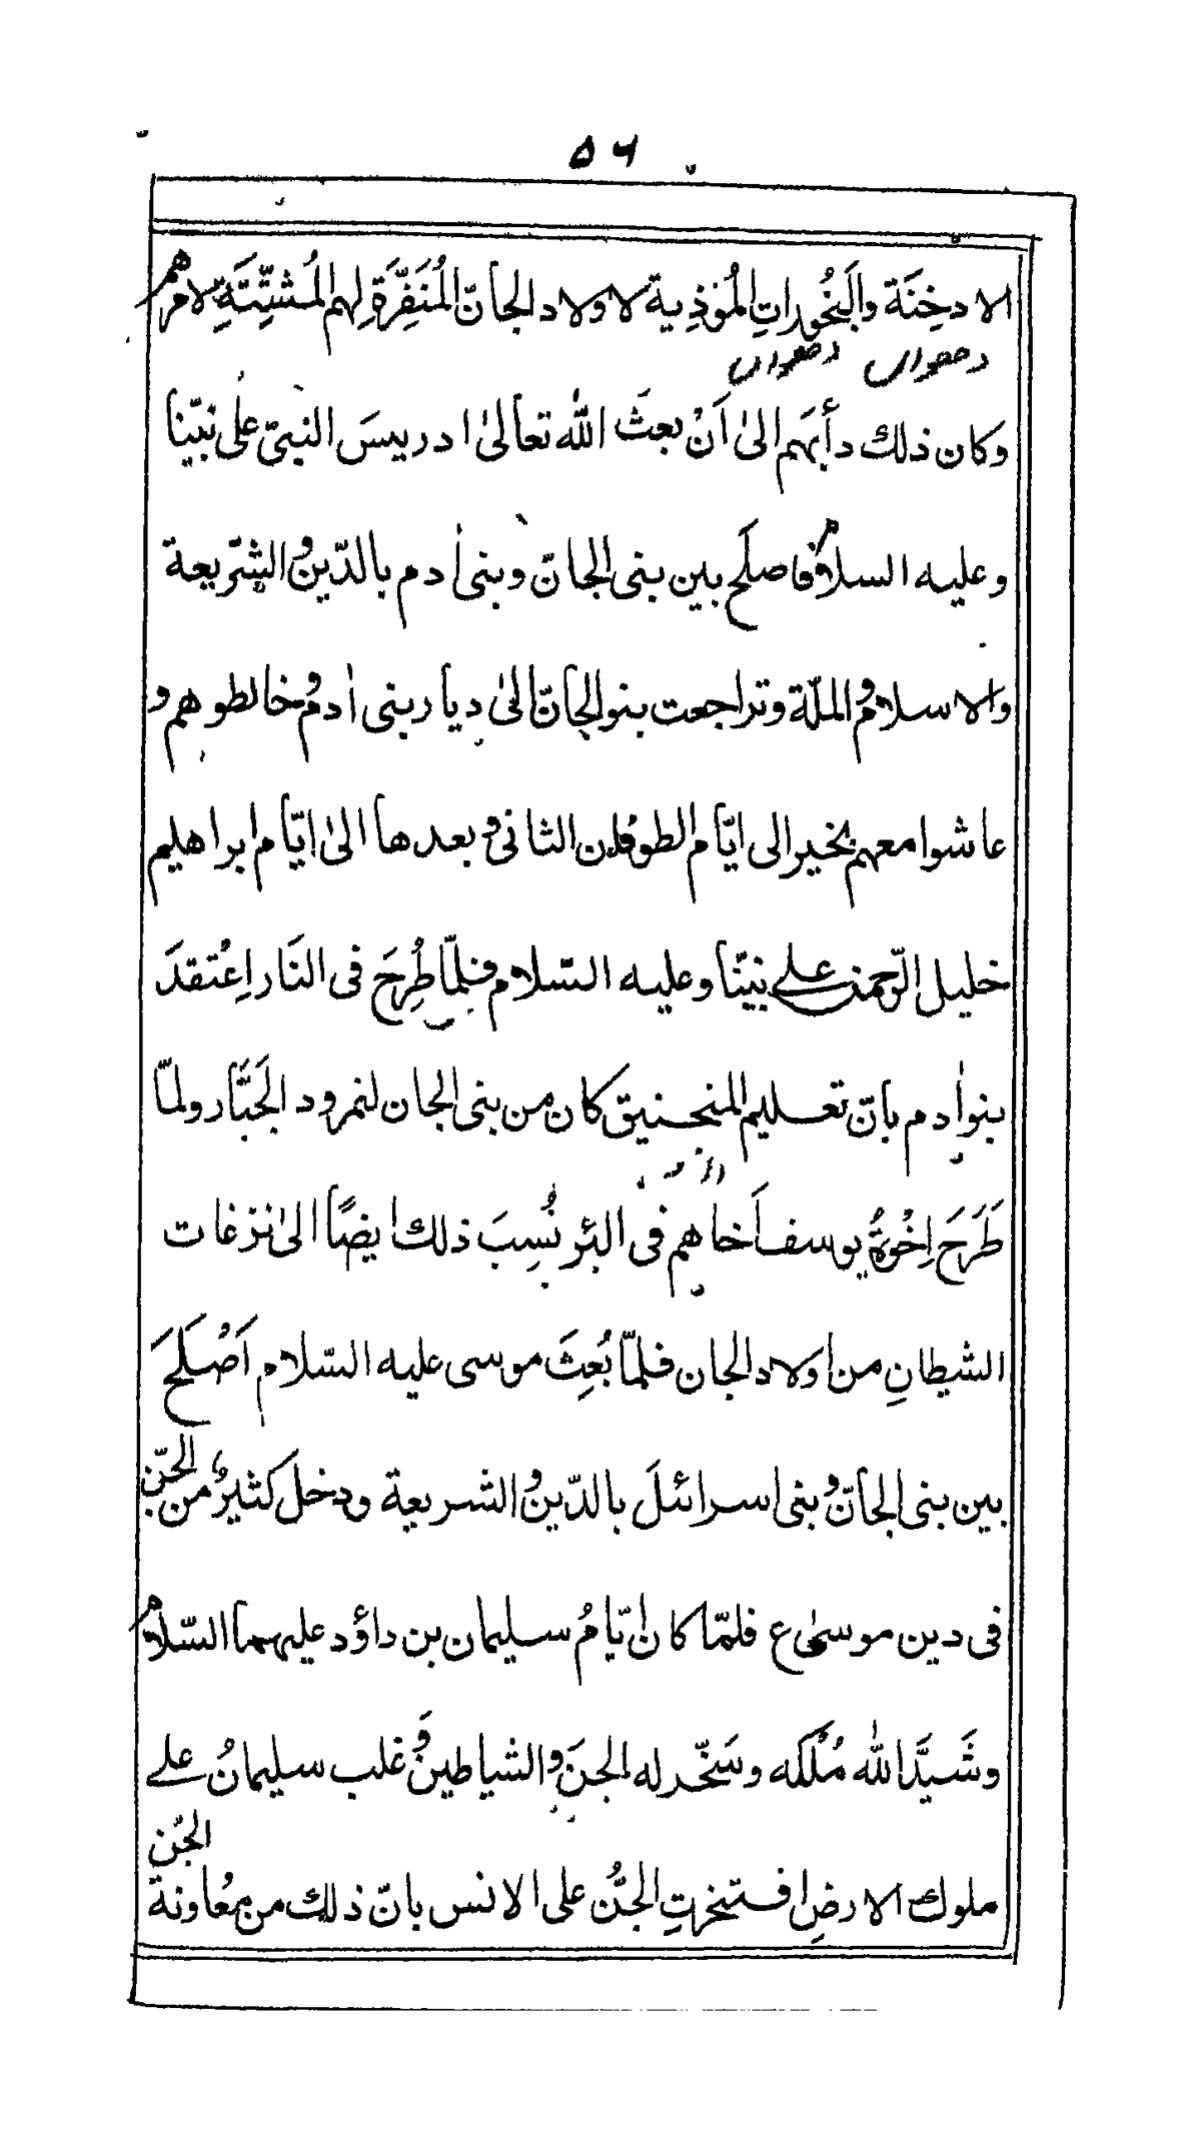 ۵۶
الادخِنَة والَبخُوراتِ المُوذِية لاولاد الجانّ المُنَفِّرَةِ لِهم المُشتِّتَةِ لامرهم
وكان ذلك دأبَهم الىٰ اَنْ بعثَ اللّٰه تعالىٰ ادريسَ النبىّ علٰى نبيّنا
وعليه السلامُ فاصلَح بين بنى الجانّ وبنى اٰدم بالدّين والشريعة
والاسلام والملّة وتراجعت بنوالجانّ الىٰ ديار بنى اٰدم وخالطوهم و
عاشوا معهم بخير الى ايّام الطوفان الثانى وبعدها الىٰ ايّام ابراهيم
خليل الرّحمٰن على نبيّنا وعليه السّلام فلمّا طُرِحَ فى النَار اِعْتقدَ
بنواٰدم بانّ تعليم المنجنيق كان من بنى الجان لنمرود الجَبَّار ولمّا
طَرَحَ اِخْوةُ يوسف اَخاهم فى البئر نُسِبَ ذلك ايضًا الىٰ نزغات
الشيطانِ من اَولاد الجان فلمّا بُعِثَ موسى عليه السّلام اَصْلَحَ
بين بنى الجانّ وبنى اسرائلَ بالدّين والشريعة ودخلَ كثيرٌ من الجنّ
فى دين موسىٰ ع فلمّا كان ايّامُ سليمان بن داؤد عليهما السّلام
وشَيَّدَ اللّٰه مُلْكَه وسَخّر له الجنَ والشياطينَ وغلب سليمانُ على
ملوك الارضِ افتخرتِ الجنُّ على الانس بانّ ذلك من مُعاونة الجّن